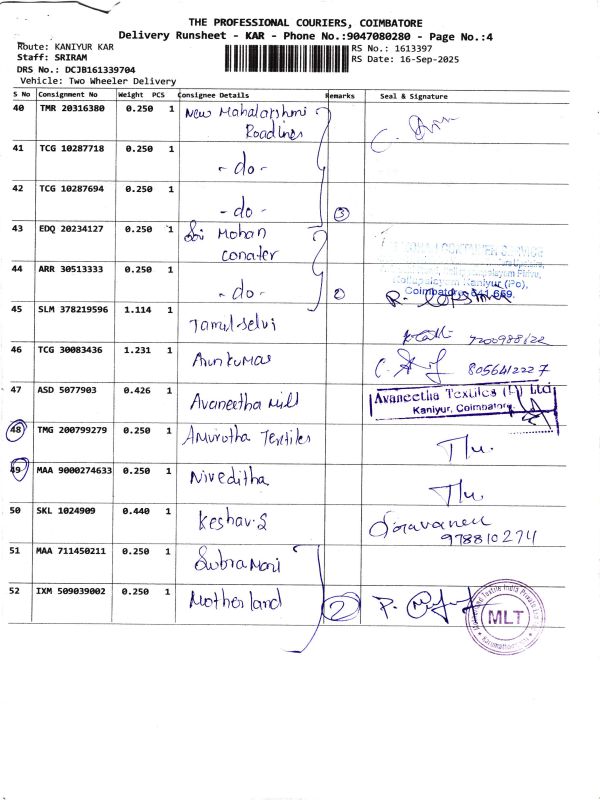 THE PROFESSIONAL COURIERS, COIMBATORE
Delivery Runsheet - KAR - Phone No.:9047080280 - Page No.:4
Route: KANIYUR KAR
RS No.: 1613397
Staff: SRIRAM
RS Date: 16-Sep-2025
DRS No.: DCJB161339704
Vehicle: Two Wheeler Delivery
S No Consignment No Weight PCS Consignee Details Remarks Seal & Signature
40 TMR 20316380 0.250 1 New Mahalakshmi
Roadlines
41 TCG 10287718 0.250 1
- do -
42 TCG 10287694 0.250 1
- do - 3
43 EDQ 20234127 0.250 1 Sri Mohan
Conater
44 ARR 30513333 0.250 1
- do -
Kaniyur (Po),
Coimbatore - 641 659.
45 SLM 378219596 1.114 1
Tamil selvi
46 TCG 30083436 1.231 1 Arunkumar 8056412227
47 ASD 5077903 0.426 1
Avaneetha Mill
Avaneetha Textiles (P) Ltd
Kaniyur, Coimbatore.
48 TMG 200799279 0.250 1 Amirutha Textiles
49 MAA 9000274633 0.250 1
Niveditha
50 SKL 1024909 0.440 1
Keshav.S
Saravanan
978810274
51 MAA 711450211 0.250 1
SubraMani
52 IXM 509039002 0.250 1 Motherland 2
MLT